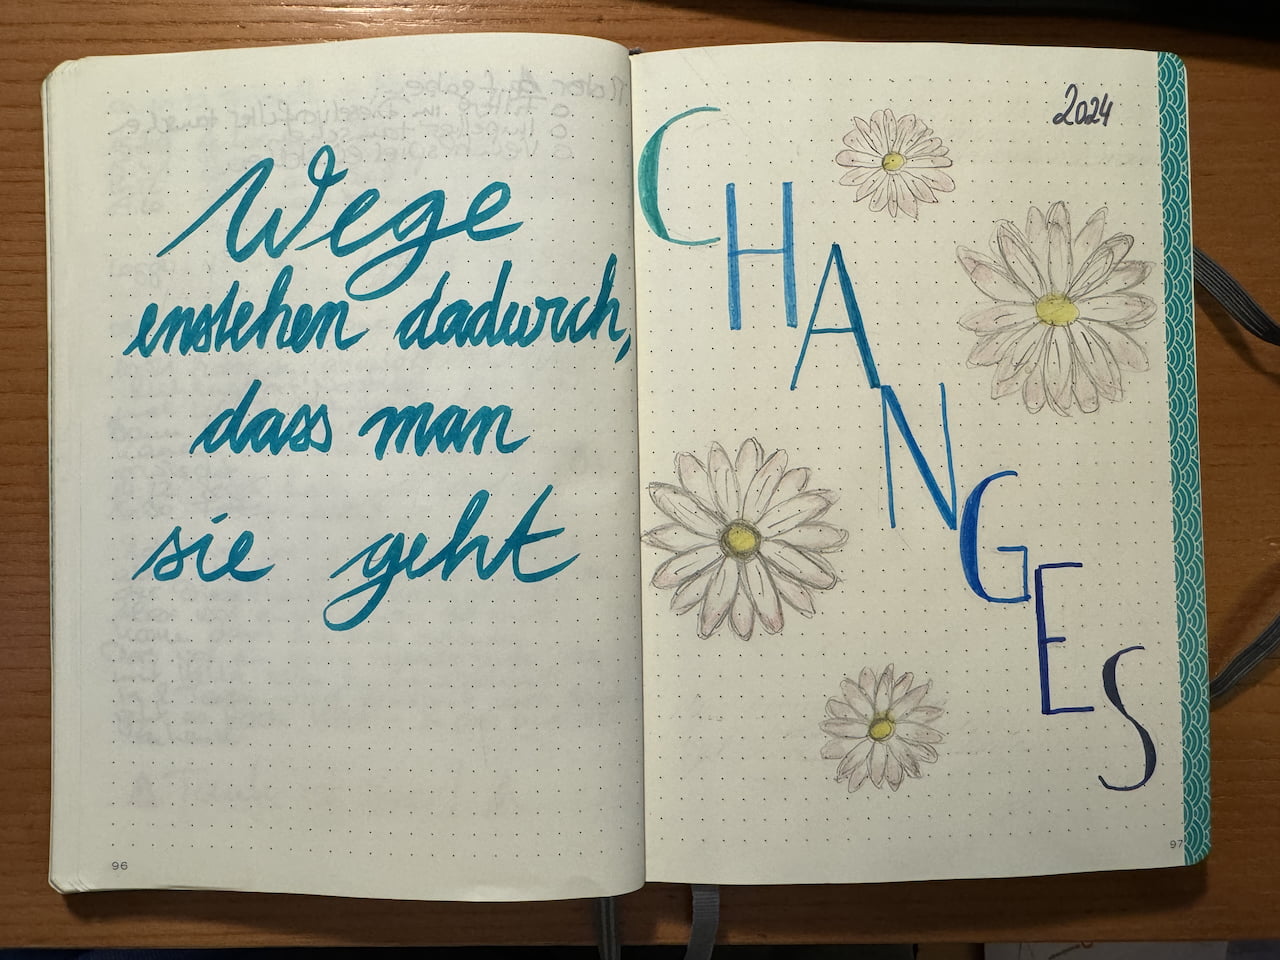 Wege
enstehen dadurch,
dass man
sie geht
96
2024
CHANGES
97